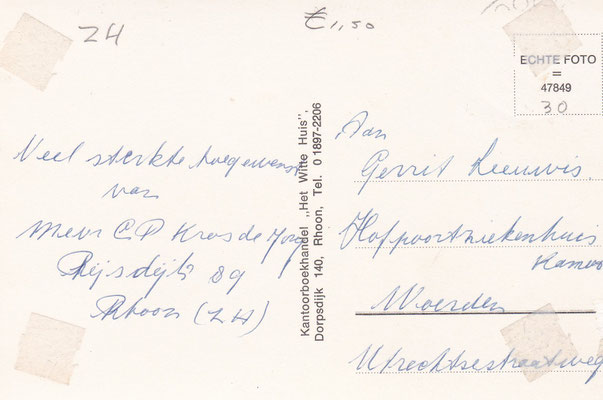 ZH
€1,50
ECHTE FOTO
=
47849
30
Veel sterkte toegewenst
van
Mevr C P Kros de Jong
Rijsdijk 89
Rhoon (ZH)
Kantoorboekhandel ,,Het Witte Huis'',
Dorpsdijk 140, Rhoon, Tel. 0 1897-2206
Aan
Gerrit Leeuwis.
Hofpoortziekenhuis
Kamer
Woerden
Utrechtsestraatweg